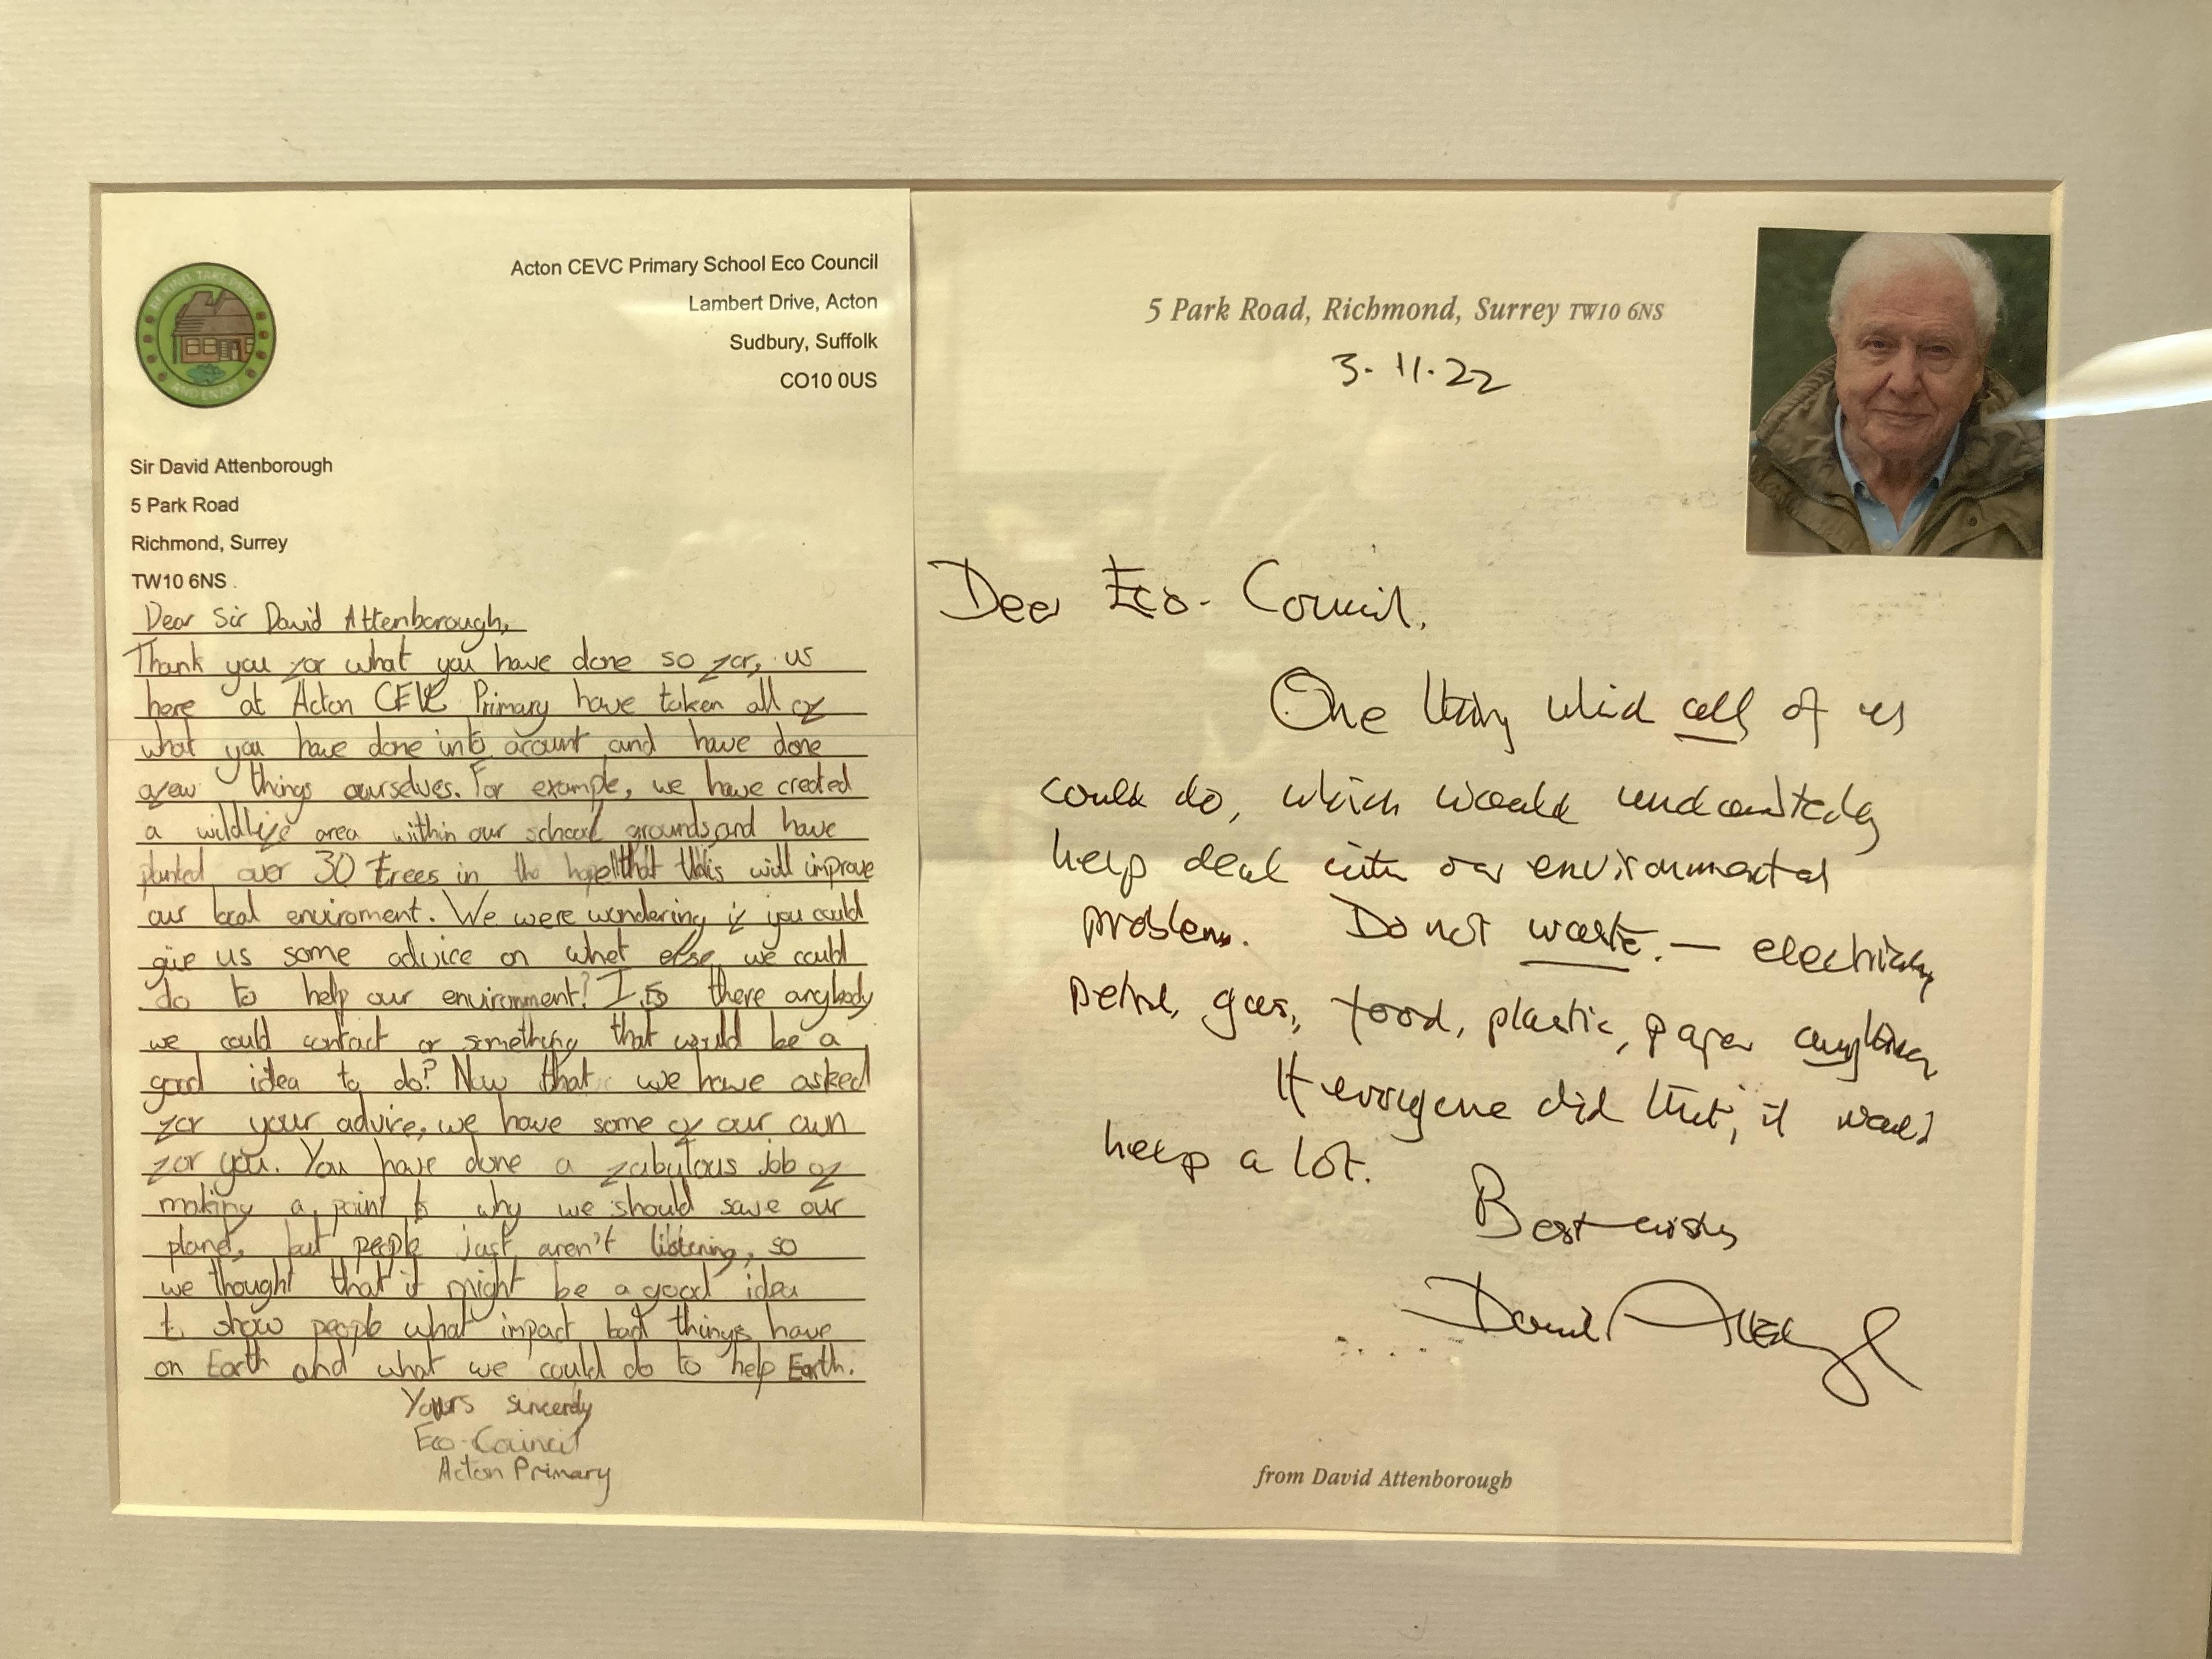 BE KIND, TAKE PRIDE
AND ENJOY
Acton CEVC Primary School Eco Council
Lambert Drive, Acton
Sudbury, Suffolk
CO10 0US
Sir David Attenborough
5 Park Road
Richmond, Surrey
TW10 6NS
Dear Sir David Attenborough,
Thank you for what you have done so far, us
here at Acton CEVC Primary have taken all of
what you have done into acount and have done
a few things ourselves. For example, we have created
a wildlife area within our school grounds and have
planted over 30 trees in the hope that this will improve
our local enviroment. We were wondering if you could
give us some advice on what else we could
do to help our environment? Is there anybody
we could contact or something that would be a
good idea to do? Now that we have asked
for your advice, we have some of our own
for you. You have done a fabulous job of
making a point to why we should save our
planet, but people just aren't listening, so
we thought that it might be a good idea
to show people what impact bad things have
on Earth and what we could do to help Earth.
Yours sincerely
Eco-Council
Acton Primary
5 Park Road, Richmond, Surrey TW10 6NS
3.11.22
Dear Eco-Council.
One thing which all of us
could do, which would undoubtedly
help deal with our environmental
problems. Do not waste. — electricity
petrol, gas, food, plastic, paper anything
If everyone did that, it would
help a lot.
Best wishes
David Attenborough
from David Attenborough